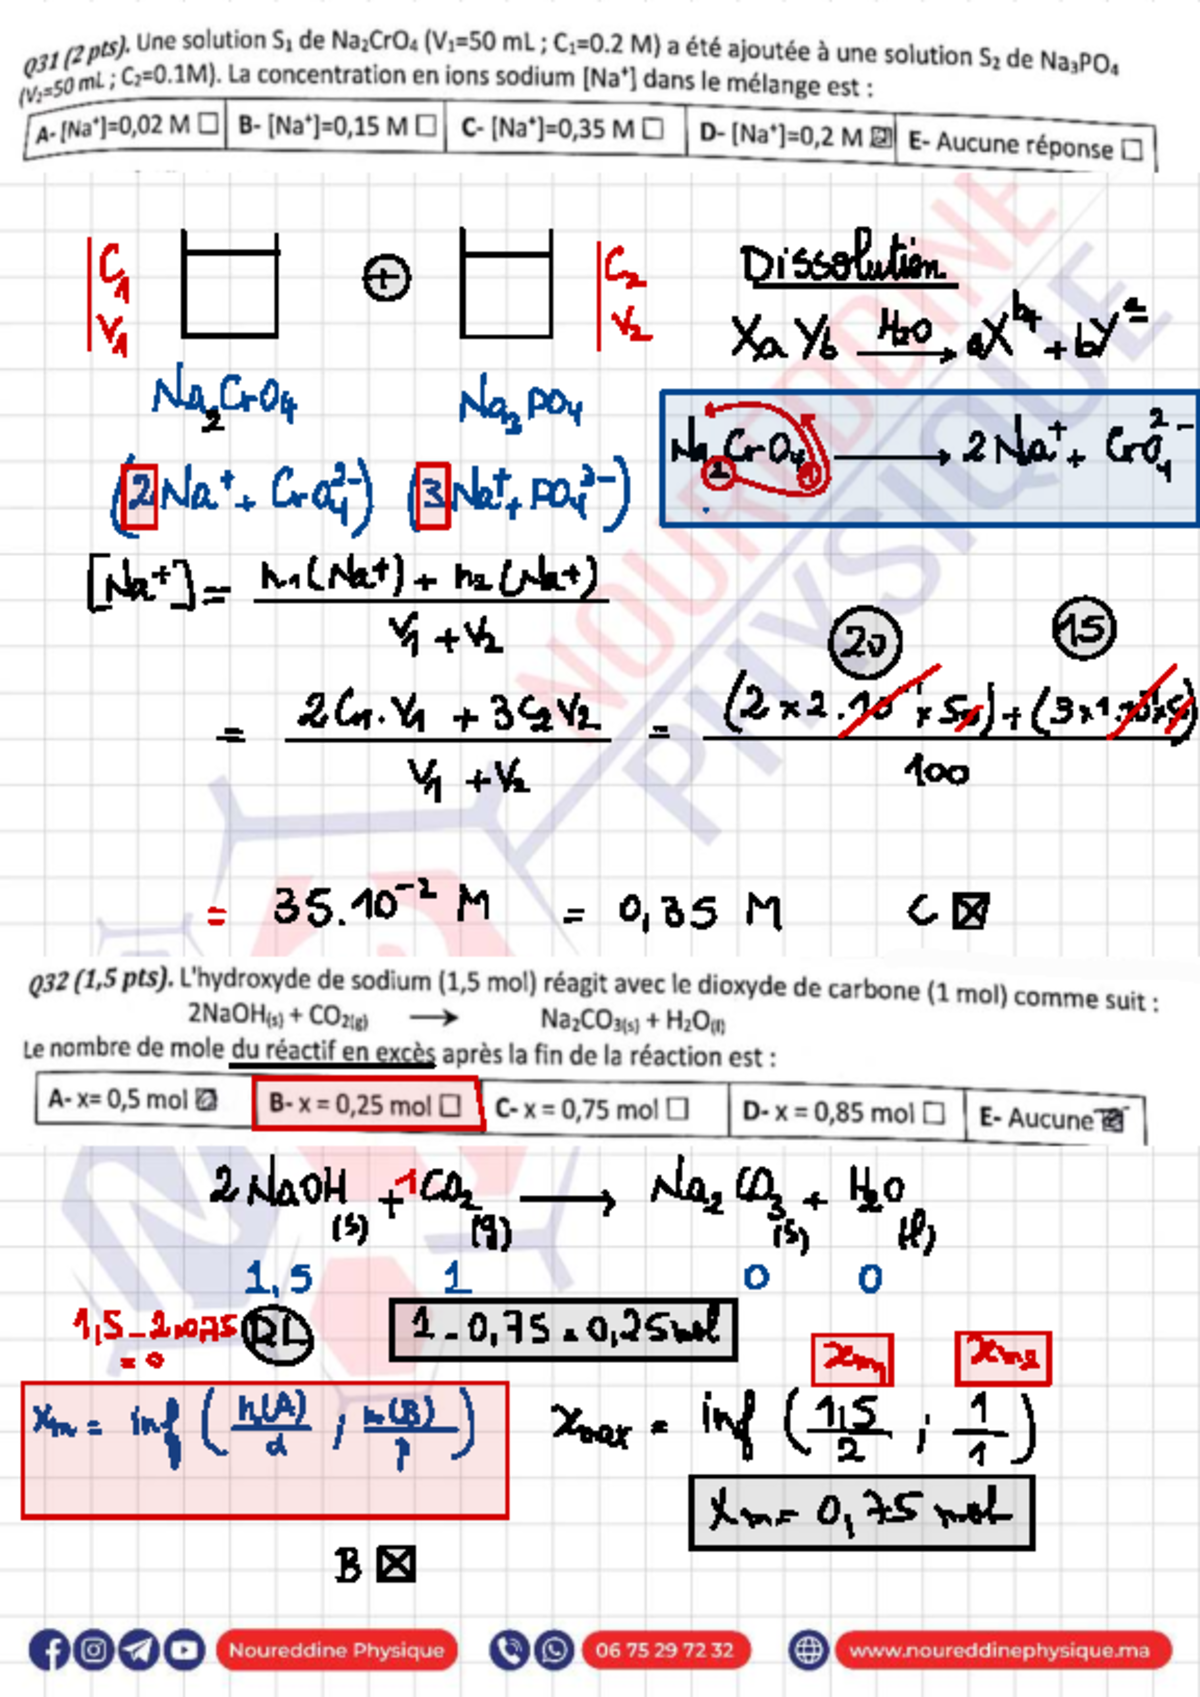 Q31 (2 pts). Une solution S₁ de Na₂CrO₄ (V₁=50 mL ; C₁=0.2 M) a été ajoutée à une solution S₂ de Na₃PO₄
(V₂=50 mL ; C₂=0.1M). La concentration en ions sodium [Na⁺] dans le mélange est :
A- [Na⁺]=0,02 M ☐ B- [Na⁺]=0,15 M ☐ C- [Na⁺]=0,35 M ☐ D- [Na⁺]=0,2 M ☒ E- Aucune réponse ☐
C₁ V₁ + C₂ V₂
Dissolution
XaYb —H₂O→ aXᵇ⁺ + bYᵃ⁻
Na₂CrO₄ Na₃PO₄
Na₂CrO₄ → 2Na⁺ + CrO₄²⁻
(2Na⁺ + CrO₄²⁻) (3Na⁺ + PO₄³⁻)
[Na⁺] = n₁(Na⁺) + n₂(Na⁺) / V₁ + V₂
20 15
= 2C₁.V₁ + 3C₂V₂ / V₁ + V₂ = (2 x 2.10⁻¹ x 50) + (3 x 1.10⁻¹ x 50) / 100
= 35.10⁻² M = 0,35 M C ☒
Q32 (1,5 pts). L'hydroxyde de sodium (1,5 mol) réagit avec le dioxyde de carbone (1 mol) comme suit :
2NaOH(s) + CO₂(g) → Na₂CO₃(s) + H₂O(l)
Le nombre de mole du réactif en excès après la fin de la réaction est :
A- x= 0,5 mol ☒ B- x = 0,25 mol ☐ C- x = 0,75 mol ☐ D- x = 0,85 mol ☐ E- Aucune ☒
2NaOH(s) + 1CO₂(g) → Na₂CO₃(s) + H₂O(l)
1,5 1 0 0
1,5 - 2x0,75 = 0 RL 1 - 0,75 = 0,25 mol
xm₁ xm₂
xm = inf ( n(A)/α ; n(B)/β ) xmax = inf ( 1,5/2 ; 1/1 )
xm = 0,75 mol
B ☒
Noureddine Physique 06 75 29 72 32 www.noureddinephysique.ma
NOUREDDINE
PHYSIQUE